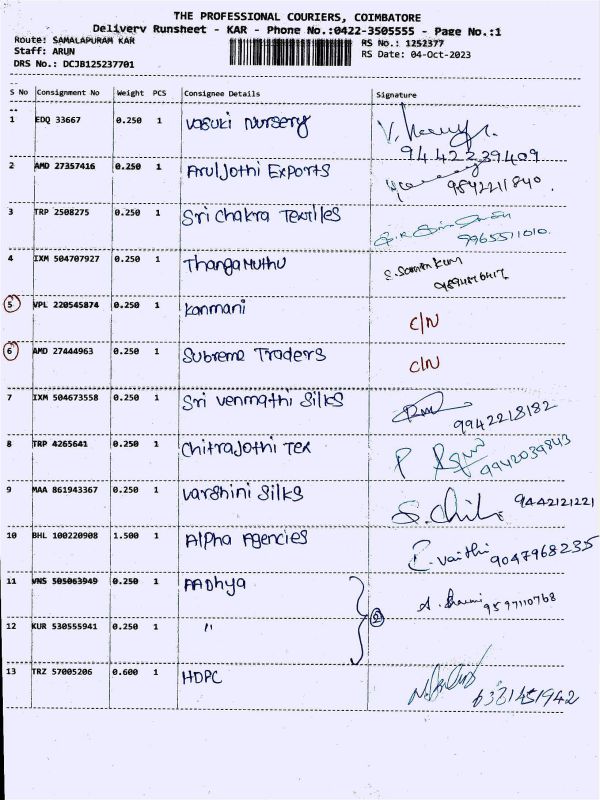 THE PROFESSIONAL COURIERS, COIMBATORE
Delivery Runsheet - KAR - Phone No.:0422-3505555 - Page No.:1
Route: SAMALAPURAM KAR
RS No.: 1252377
Staff: ARUN
RS Date: 04-Oct-2023
DRS No.: DCJB125237701
S No Consignment No Weight PCS Consignee Details Signature
1 EDQ 33667 0.250 1 Vasuki Nursery
9442239409
2 AMD 27357416 0.250 1 Aruljothi Exports
9842211840.
3 TRP 2508275 0.250 1 Sri Chakra Textiles
9965571010.
4 IXM 504707927 0.250 1 Thangamuthu
5 VPL 220545874 0.250 1 Kanmani C/N
6 AMD 27444963 0.250 1 Subreme Traders C/N
7 IXM 504673558 0.250 1 Sri Venmathi Silks
9942218182
8 TRP 4265641 0.250 1 Chitrajothi Tex
9942039843
9 MAA 861943367 0.250 1 Varshini Silks 9442121221
10 BHL 100220908 1.500 1 Alpha Agencies
E. Vaithi 9047968235
11 VNS 505063949 0.250 1 AADhya
9597110768
2
12 KUR 530555941 0.250 1 〃
13 TRZ 57005206 0.600 1 HDPC
6381451942